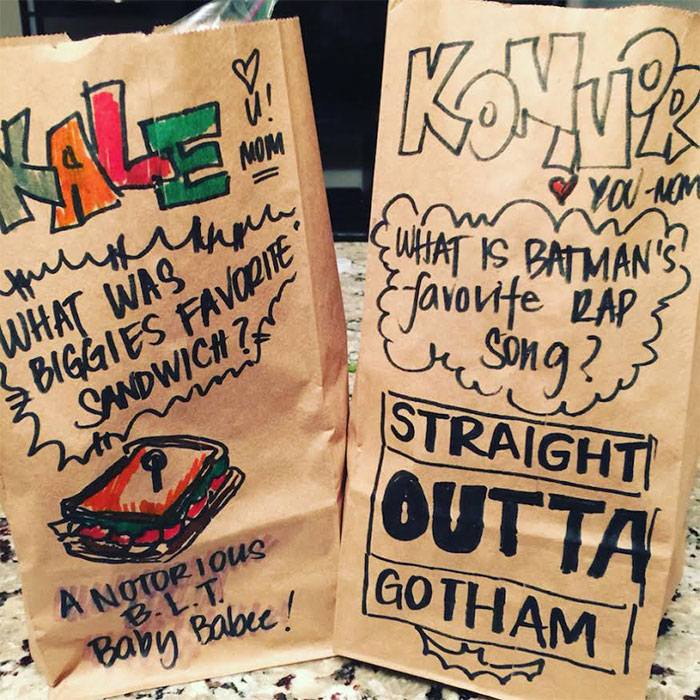 KALE
♥ U!
MOM
WHAT WAS
BIGGIES FAVORITE
SANDWICH?
A NOTORIOUS
B.L.T.
Baby Babee!
KONNOR
♥ YOU -MOM
WHAT IS BATMAN'S
favorite RAP
Song?
STRAIGHT
OUTTA
GOTHAM